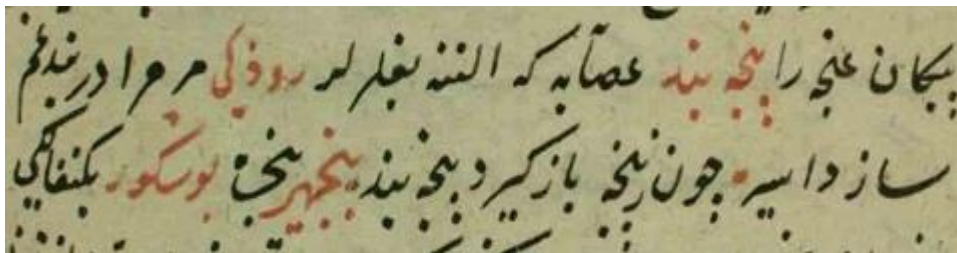 پیکان غنچه را پنجه بند عصابه که النه بغلر لر رودکی مر مرا در بند غم
سازد اسیر چون زپنجه باز گیرد پنجه بند پنجهیر پنجره بوشکور بکنفاکهی